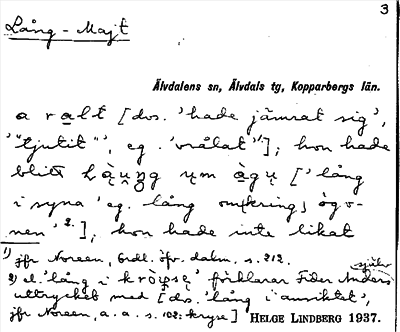 3
Lång-Majt
Älvdalens sn, Älvdals tg, Kopparbergs län.
a ralt [dvs. 'hade jämrat sig',
'"tjutit"', eg. 'vrålat'¹⁾]; hon hade
blitt lą̀ųŋg ųm ą̀gų ['lång
i syna' eg. lång om(kring) ögo-
nen'²⁾.], hon hade inte likat
1) jfr Noreen, Ordl. öfv. dalm. s. 212.
2) el. 'lång i kròipsę' förklarar Fider Anders själv
uttrycket med [dvs. 'lång i ansiktet',
jfr Noreen, a. a. s. 102: kryse] HELGE LINDBERG 1937.